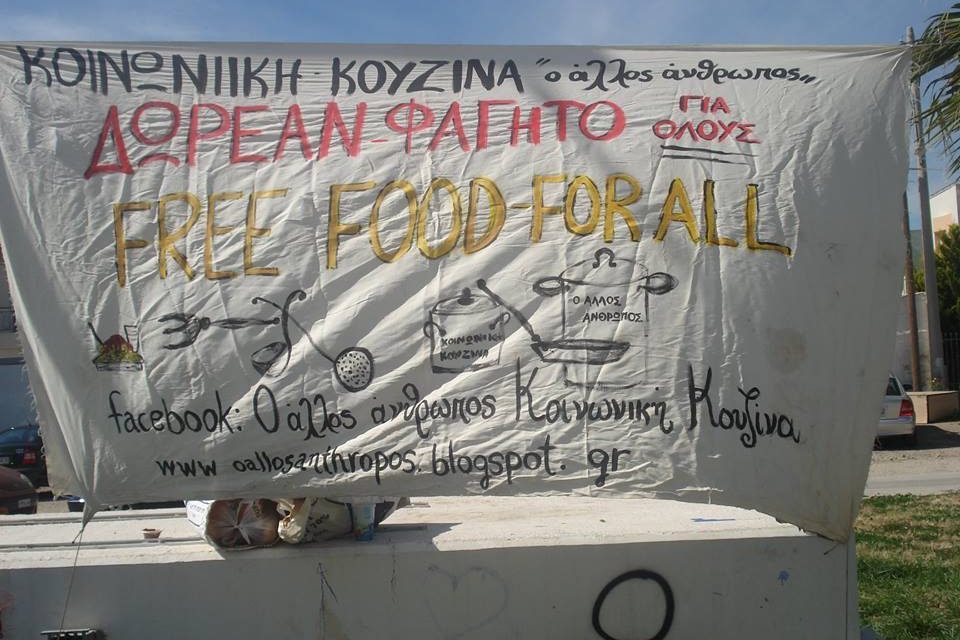 ΚΟΙΝΩΝΙΙΚΗ·ΚΟΥΖΙΝΑ "ο άλλος άνθρωπος„
ΔΩΡΕΑΝ-ΦΑΓΗΤΟ ΓΙΑ ΟΛΟΥΣ
FREE FOOD-FOR ALL
Ο ΑΛΛΟΣ
ΑΝΘΡΩΠΟΣ
ΚΟΙΝΩΝΙΚΗ
ΚΟΥΖΙΝΑ
facebook: Ο άλλος άνθρωπος Κοινωνική Κουζίνα
www oallosanthropos. blogspot. gr